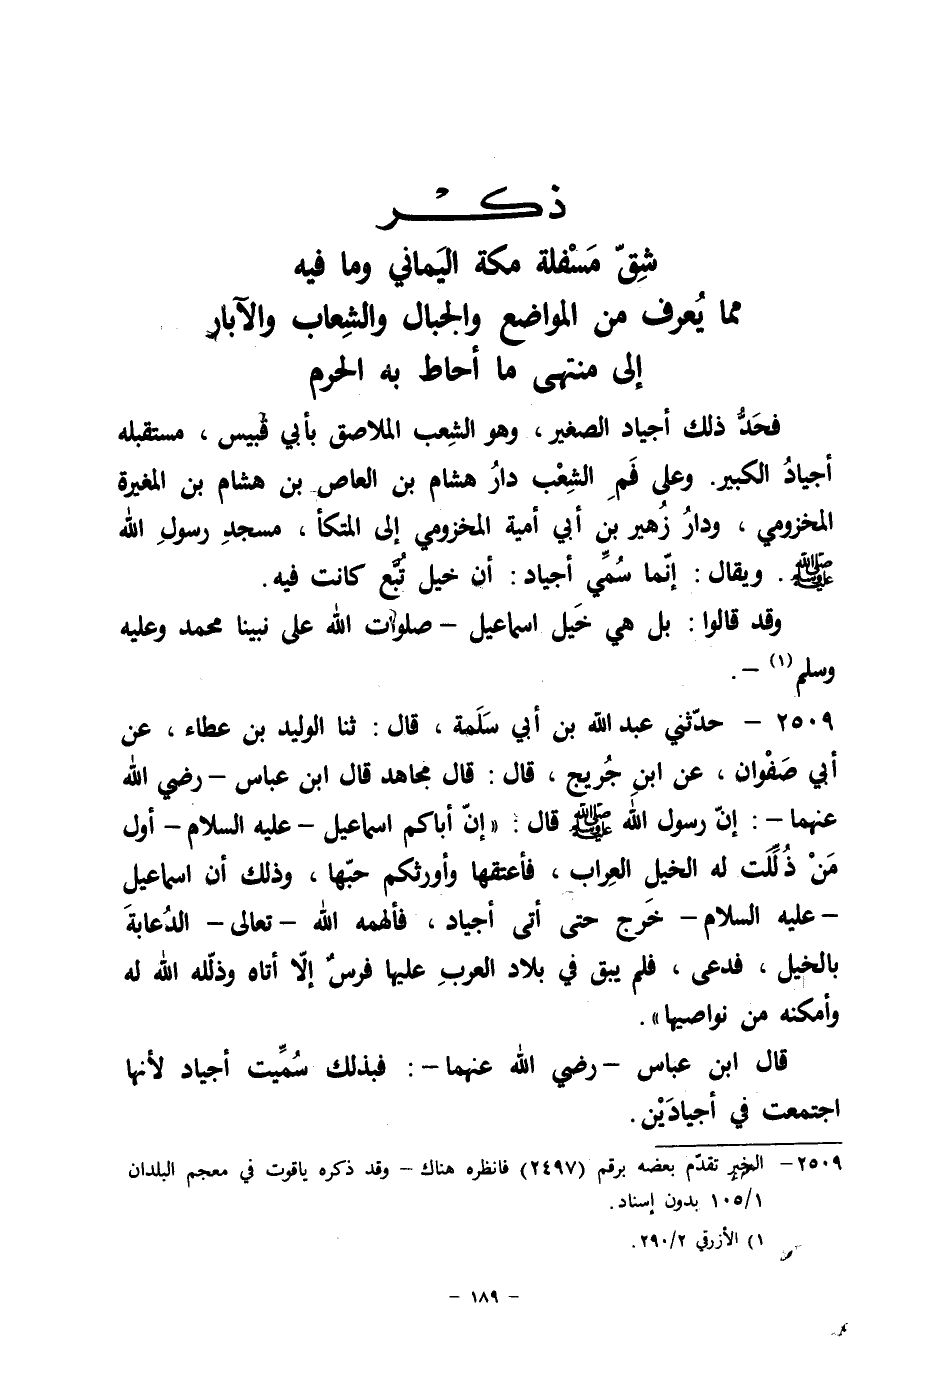 ذكر
شِقّ مَسْفلة مكة اليَماني وما فيه
مما يُعرف من المواضع والجبال والشِعاب والآبار
إلى منتهى ما أحاط به الحرم
فحَدُّ ذلك أجياد الصغير ، وهو الشِعب الملاصق بأبي قُبيس ، مستقبله
أجيادُ الكبير. وعلى فَمِ الشِعْب دارُ هشام بن العاص بن هشام بن المغيرة
المخزومي ، ودارُ زُهير بن أبي أمية المخزومي إلى المتكأ ، مسجدِ رسولِ الله
ﷺ . ويقال : إنّما سُمِّي أجياد : أن خيل تُبَّع كانت فيه.
وقد قالوا : بل هي خَيل اسماعيل – صلوات الله على نبينا محمد وعليه
وسلم (١) –.
٢٥٠٩ – حدّثني عبد الله بن أبي سَلَمة ، قال : ثنا الوليد بن عطاء ، عن
أبي صَفْوان ، عن ابنِ جُريج ، قال : قال مجاهد قال ابن عباس – رضي الله
عنهما – : إنّ رسول الله ﷺ قال : « إنّ أباكم اسماعيل – عليه السلام – أول
مَنْ ذُلِّلَت له الخيل العِراب ، فأعتقها وأورثكم حبّها ، وذلك أن اسماعيل
– عليه السلام – خَرج حتى أتى أجياد ، فألهمه الله – تعالى – الدُعابةَ
بالخيل ، فدعى ، فلم يبق في بلاد العربِ عليها فرسٌ إلّا أتاه وذلّله الله له
وأمكنه من نواصيها».
قال ابن عباس – رضي الله عنهما – : فبذلك سُمِّيت أجياد لأنها
اجتمعت في أجيادَيْن.
٢٥٠٩ – الخبر تقدّم بعضه برقم (٢٤٩٧) فانظره هناك – وقد ذكره ياقوت في معجم البلدان
١٠٥/١ بدون إسناد.
١) الأزرقي ٢٩٠/٢.
– ١٨٩ –